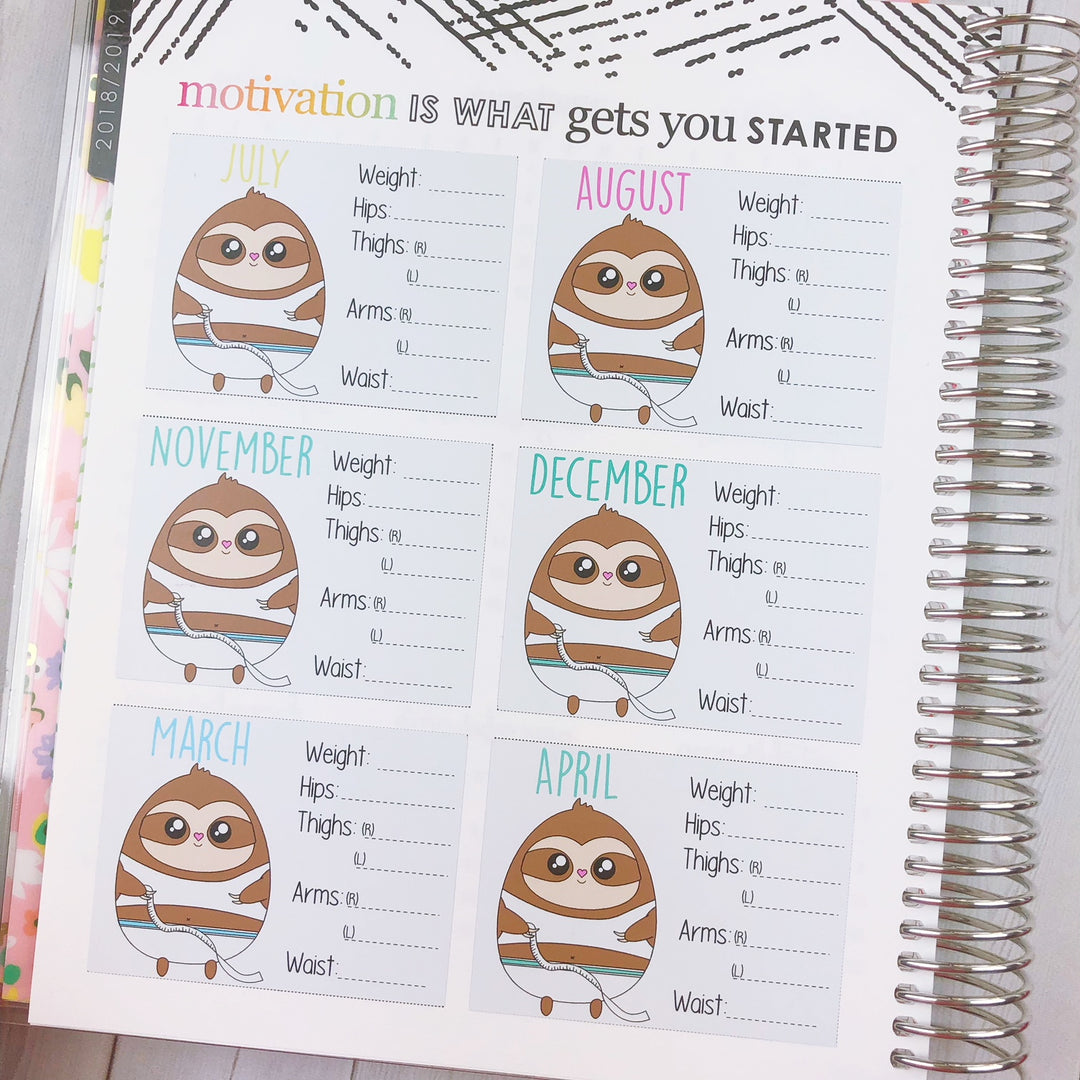 2018/2019
motivation IS WHAT gets you STARTED
JULY
Weight:
Hips:
Thighs: (R)
(L)
Arms: (R)
(L)
Waist:
AUGUST
Weight:
Hips:
Thighs: (R)
(L)
Arms: (R)
(L)
Waist:
NOVEMBER
Weight:
Hips:
Thighs: (R)
(L)
Arms: (R)
(L)
Waist:
DECEMBER
Weight:
Hips:
Thighs: (R)
(L)
Arms: (R)
(L)
Waist:
MARCH
Weight:
Hips:
Thighs: (R)
(L)
Arms: (R)
(L)
Waist:
APRIL
Weight:
Hips:
Thighs: (R)
(L)
Arms: (R)
(L)
Waist: